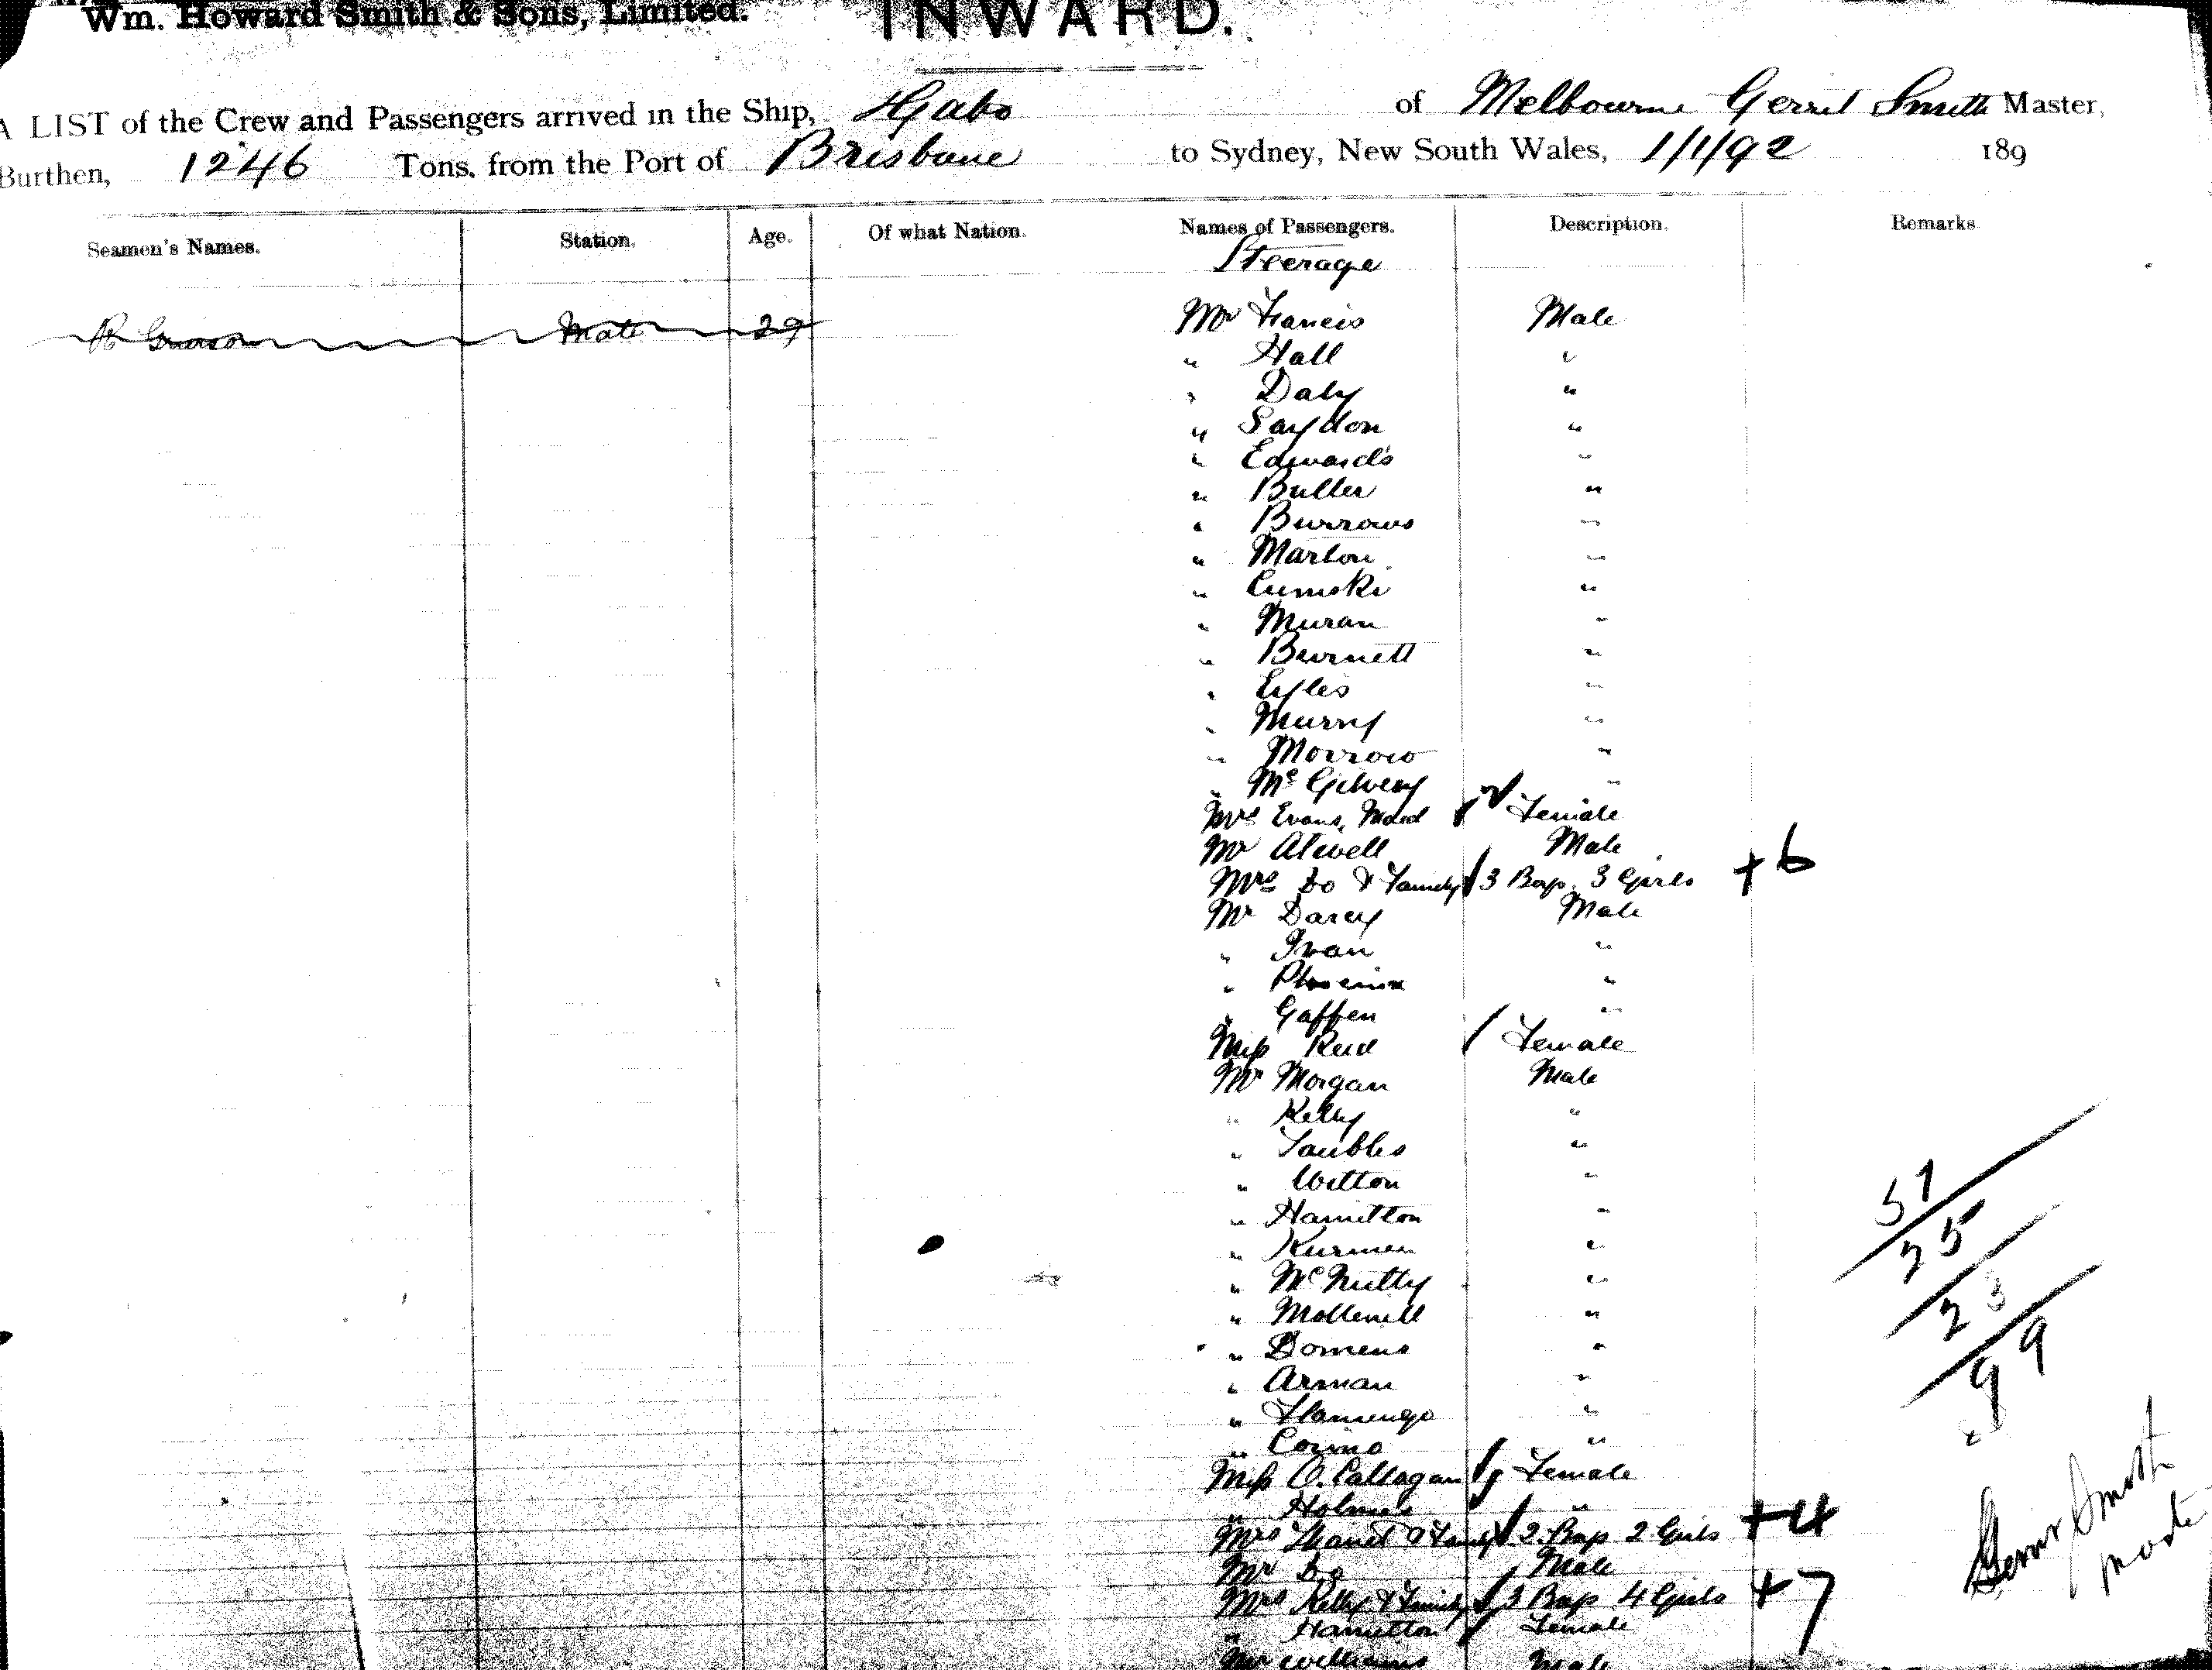 Wm. Howard Smith & Sons, Limited.
INWARD.
A LIST of the Crew and Passengers arrived in the Ship, Gabo of Melbourne Gerrit Smith Master,
Burthen, 1246 Tons. from the Port of Brisbane to Sydney, New South Wales, 1/1/92 189
Seamen's Names. Station. Age. Of what Nation. Names of Passengers. Description. Remarks.
Steerage
R Mate 29 Mr Francis Male
" Hall "
" Daly "
" Saydon "
" Edwards "
" Buller "
" Burrows "
" Marlow "
" Cumski "
" Muran "
" Burnett "
" Eyles "
" Murry "
" Morrow "
" McGilvery "
Mrs Evans, Maid 2 Female
Mr Atwell Male
Mrs Do & Family 3 Boys 3 Girls +6
Mr Darcy Male
" Ivan "
" Phoenix "
" Gaffen "
Miss Reid Female
Mr Morgan Male
" Kelly "
" Saubles "
" Witton "
" Hamilton "
" Kurmen "
" McNutty "
" "
" Domens "
" Arman "
" Flamengo "
" Cosimo "
Miss O.Callagan Female
" Holmes "
Mrs & Family 2 Boys 2 Girls +4
Mr Do Male
Mrs Kelly & Family 3 Boys 4 Girls +7
" Hamilton Female
Mr Williams Male
51
25
23
99
Smith